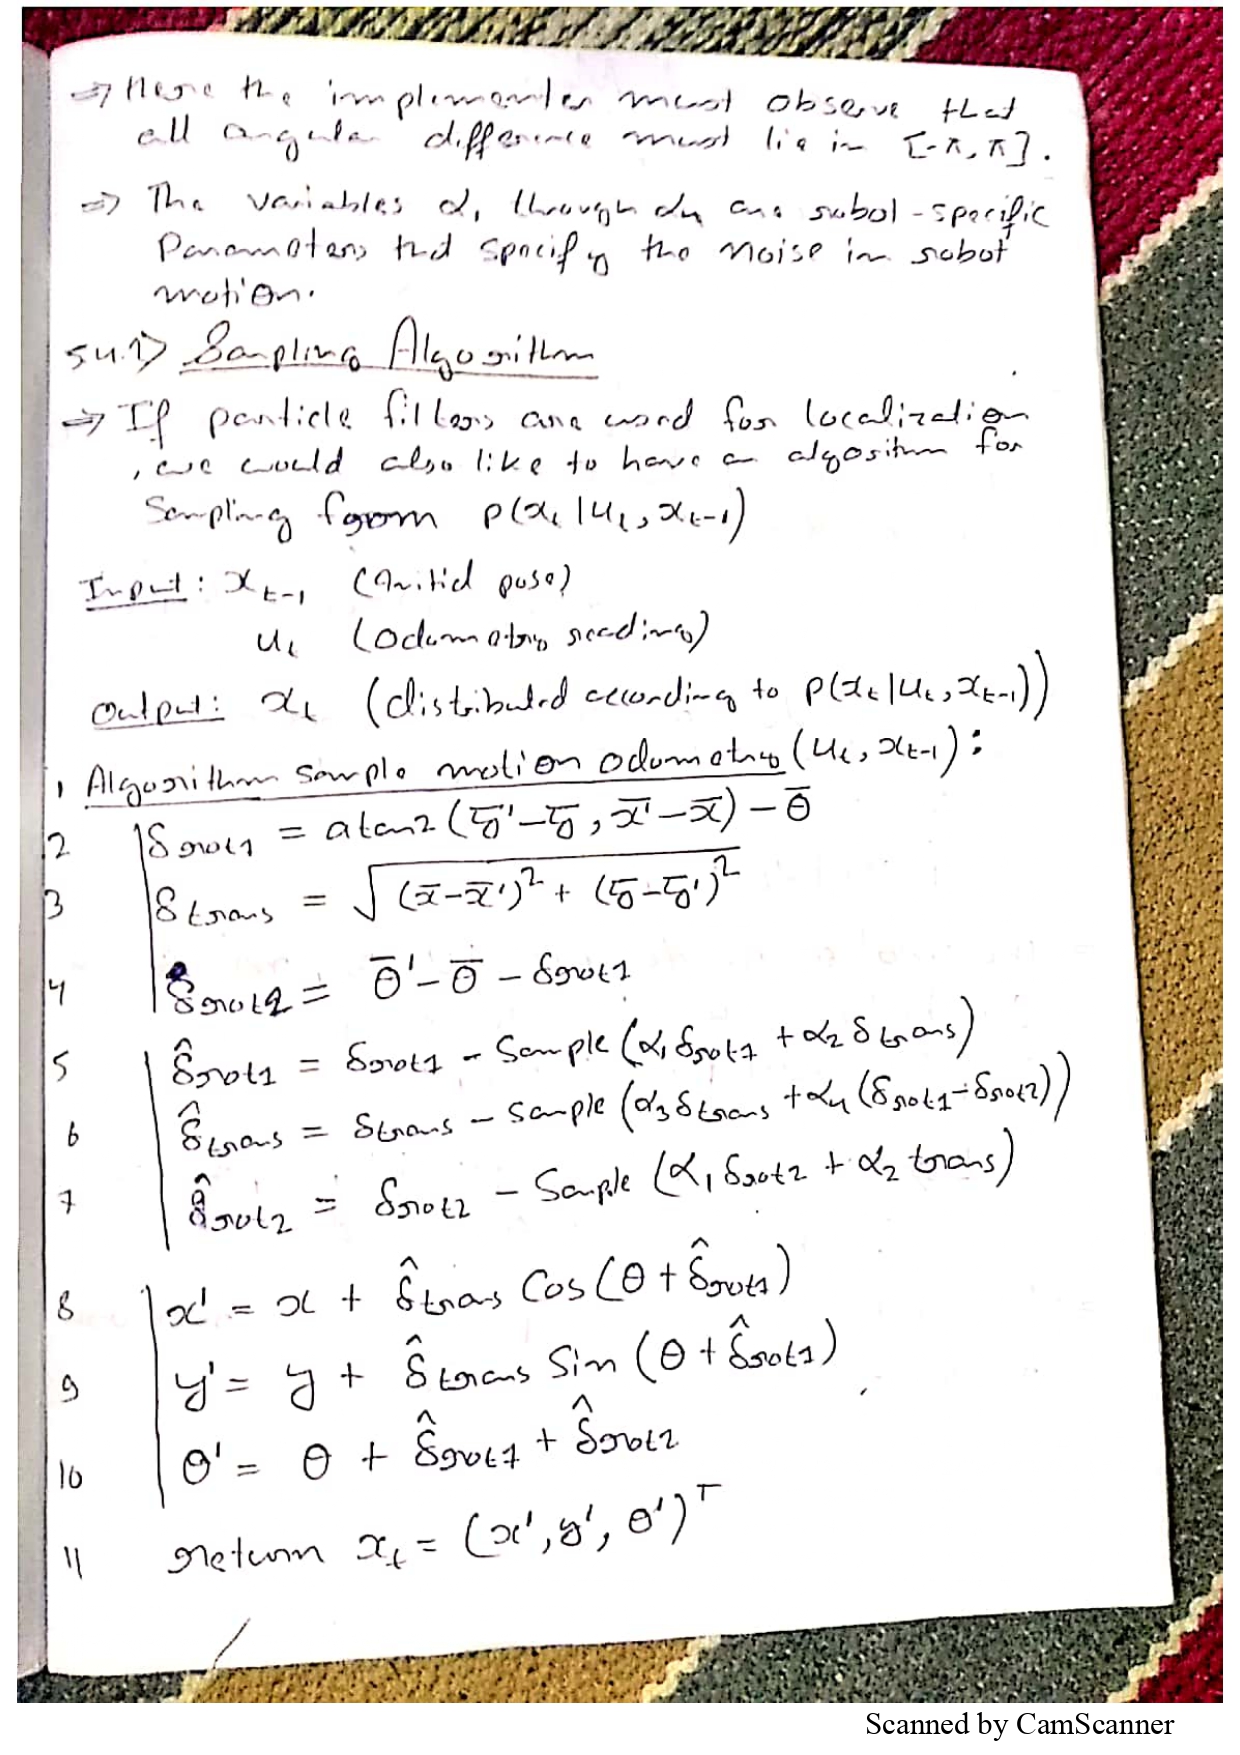 ⇒ Here the implementer must observe that
all angular difference must lie in [-π, π].
⇒ The variables α₁ through α₄ are robot-specific
Parameters that specify the noise in robot
motion.
5.4.2> Sampling Algorithm
⇒ If particle filters are used for localization
, we would also like to have an algorithm for
Sampling from p(xₜ|uₜ, xₜ₋₁)
Input: xₜ₋₁ (Initial pose)
uₜ (Odometry reading)
Output: xₜ (distributed according to p(xₜ|uₜ, xₜ₋₁))
1 Algorithm sample motion odometry (uₜ, xₜ₋₁):
2 δrot1 = atan2(ȳ'-ȳ, x̄'-x̄) - θ̄
3 δtrans = √((x̄-x̄')² + (ȳ-ȳ')²)
4 δrot2 = θ̄' - θ̄ - δrot1
5 δ̂rot1 = δrot1 - Sample(α₁δrot1 + α₂δtrans)
6 δ̂trans = δtrans - Sample(α₃δtrans + α₄(δrot1-δrot2))
7 δ̂rot2 = δrot2 - Sample(α₁δrot2 + α₂trans)
8 x' = x + δ̂trans Cos(θ + δ̂rot1)
9 y' = y + δ̂trans Sin(θ + δ̂rot1)
10 θ' = θ + δ̂rot1 + δ̂rot2
11 return xₜ = (x', y', θ')ᵀ
Scanned by CamScanner